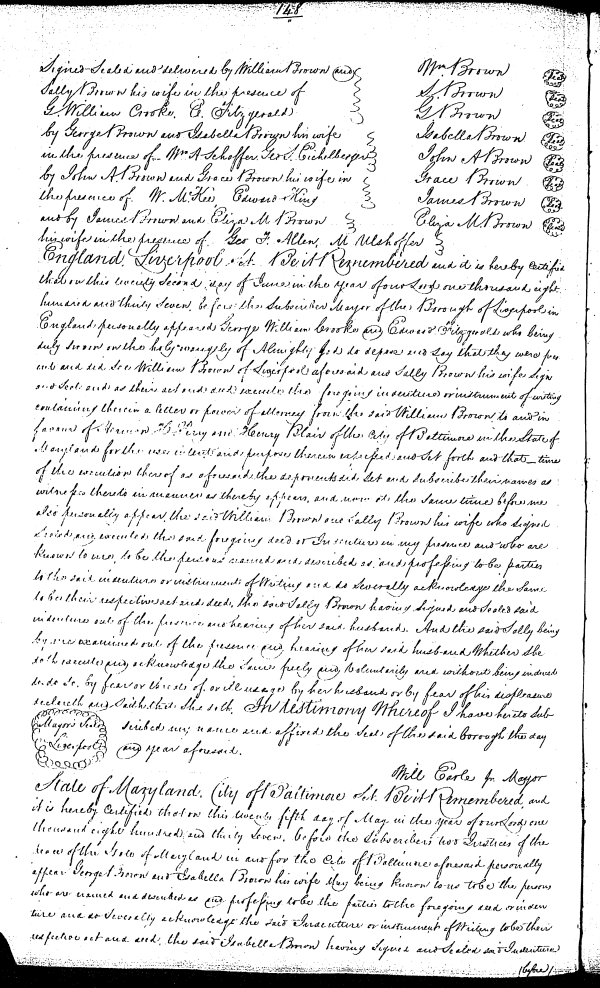 148
Signed Sealed and delivered by William Brown and Wm Brown Seal
Sally Brown his wife in the presence of S. Brown Seal
G William Crooke, E. Fitzgerald G Brown Seal
by George Brown and Isabella Brown his wife Isabella Brown Seal
in the presence of Wm A Schoffer Geo S. Eichelberger John A Brown Seal
by John A. Brown and Grace Brown his wife in Grace Brown Seal
the presence of W. McKee, Edward King James Brown Seal
and by James Brown and Eliza M Brown Eliza M Brown Seal
his wife in the presence of Geo F. Allen, M Ulshoffer
England Liverpool Sct. Be it Remembered and it is hereby Certified
that on this twenty Second day of June in the year of our Lord one thousand eight
hundred and thirty Seven, before the Subscriber Mayor of the Borough of Liverpool in
England personally appeared George William Crooke and Edward Fitzgerald who being
duly Sworn on the holy evangely of Almighty God do depose and Say that they were pre
sent and did See William Brown of Liverpool aforesaid and Sally Brown his wife Sign
and Seal and as their act and deed execute the foregoing indenture or instrument of writing
containing therein a letter or power of attorney from the said William Brown to and in
favour of and Henry Blair of the City of Baltimore in the State of
Maryland for the uses intents and purposes therein expressed and Set forth and that time
of the execution thereof as aforesaid the deponents did Set and Subscribe their names as
witnesses thereto in manner as thereby appears, and now at the Same time before me
also personally appear the said William Brown and Sally Brown his wife who signed
Sealed and executed the said foregoing deed or Indenture in my presence and who are
known to me, to be the persons named and described as, and professing to be parties
to the said indenture or instrument of Writing and do Severally acknowledge the Same
to be their respective act and deed, the said Sally Brown having signed and Sealed said
indenture out of the presence and hearing of her said husband. And the said Sally being
by me examined out of the presence and hearing of her said husband Whether She
doth execute and acknowledge the Same freely and Voluntarily and without being induced
to do So, by fear or threats of, or ill usage by her husband or by fear of his displeasure
declareth and Saith that She doth. In testimony Whereof I have hereto Sub-
Mayor's Seal Liverpool scribed my name and affixed the Seal of the said borough the day
and year aforesaid.
Will Earle Jr Mayor
State of Maryland, City of Baltimore Sct. Be it Remembered, and
it is hereby Certified that on this twenty fifth day of May in the year of our Lord one
thousand eight hundred and thirty Seven, before the Subscribers two Justices of the
Peace of the State of Maryland in and for the City of Baltimore aforesaid personally
appear George Brown and Isabella Brown his wife they being known to us to be the persons
who are named and described as and professing to be the parties to the foregoing deed or inden
ture and do Severally acknowledge the said Indenture or instrument of Writing to be their
respective act and deed, the said Isabella Brown having Signed and Sealed said Indenture
(before)